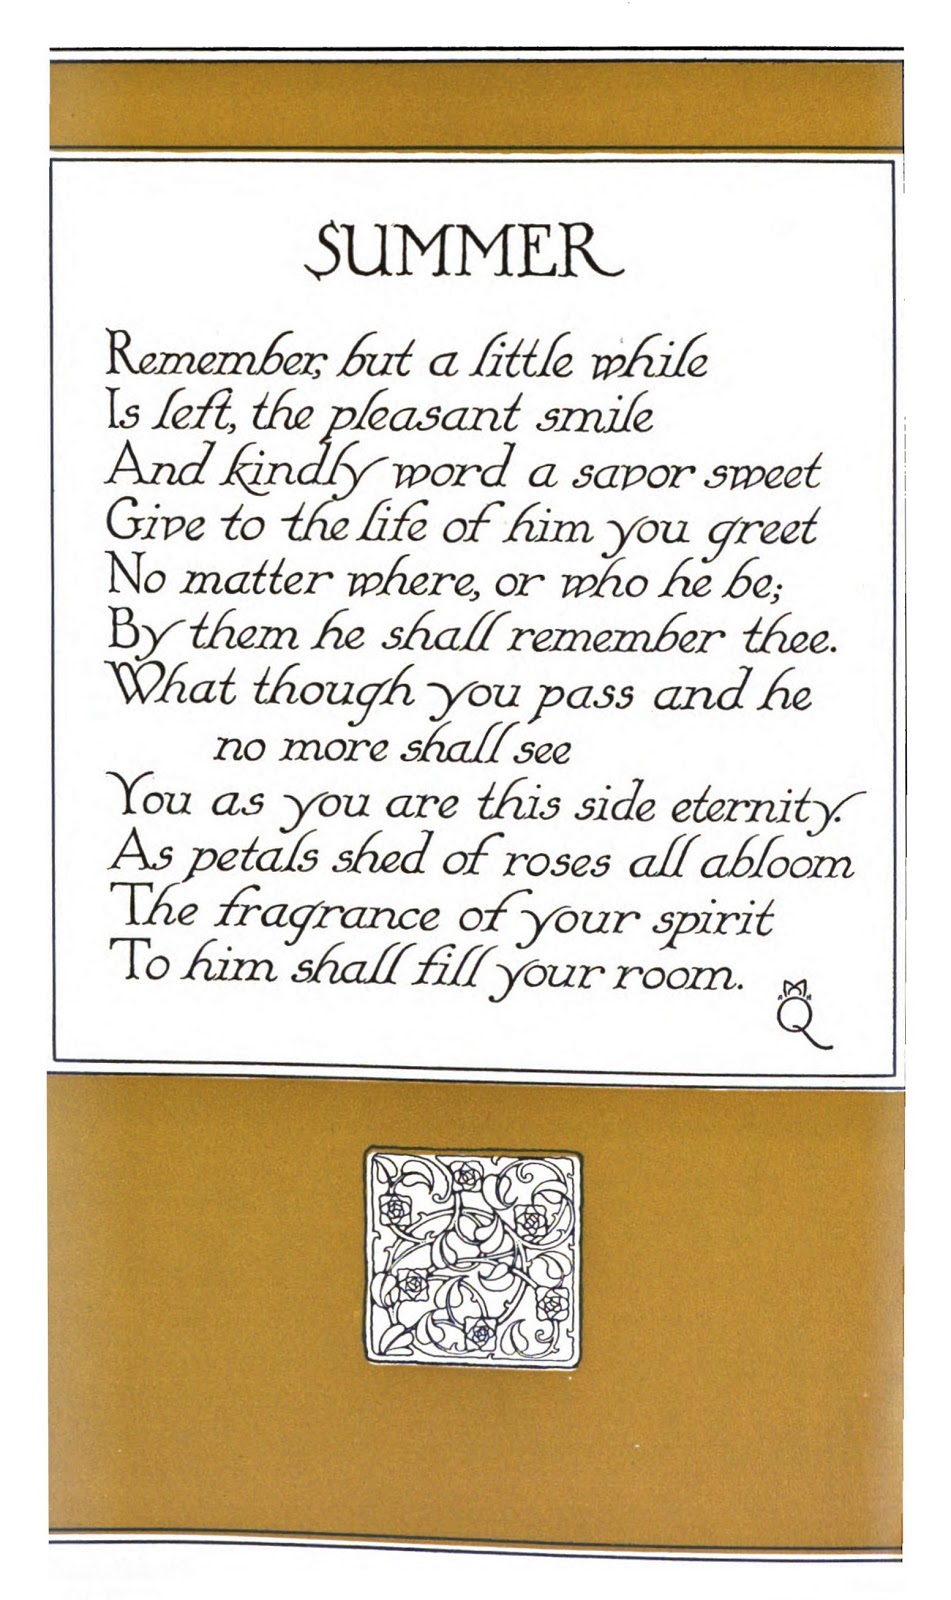 SUMMER
Remember, but a little while
Is left, the pleasant smile
And kindly word a savor sweet
Give to the life of him you greet
No matter where, or who he be;
By them he shall remember thee.
What though you pass and he
no more shall see
You as you are this side eternity.
As petals shed of roses all abloom
The fragrance of your spirit
To him shall fill your room.
Q